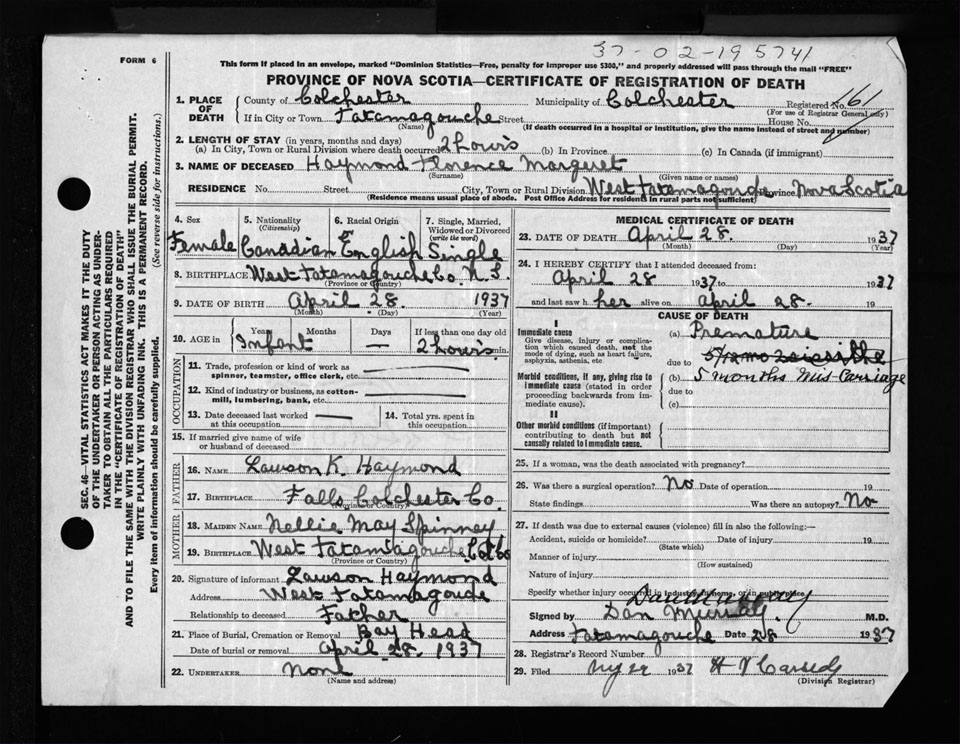 37-02-195741
FORM 6
This form if placed in an envelope, marked "Dominion Statistics—Free, penalty for improper use $300," and properly addressed will pass through the mail "FREE"
PROVINCE OF NOVA SCOTIA—CERTIFICATE OF REGISTRATION OF DEATH
1. PLACE OF DEATH
County of Colchester Municipality of Colchester Registered No. 161
(For use of Registrar General only)
If in City or Town Tatamagouche Street House No.
(Name) (If death occurred in a hospital or institution, give the name instead of street and number)
2. LENGTH OF STAY (in years, months and days)
(a) In City, Town or Rural Division where death occurred 2 hours (b) In Province (c) In Canada (if immigrant)
3. NAME OF DECEASED Haymond Florence Margaret
(Surname) (Given name or names)
RESIDENCE No. Street City, Town or Rural Division West Tatamagouche Province Nova Scotia
(Residence means usual place of abode. Post Office Address for residents in rural parts not sufficient)
4. Sex Female
5. Nationality (Citizenship) Canadian
6. Racial Origin English
7. Single, Married, Widowed or Divorced (write the word) Single
8. BIRTHPLACE West Tatamagouche Co. N.S.
(Province or Country)
9. DATE OF BIRTH April 28. 1937
(Month) (Day) (Year)
10. AGE in Years Months Days If less than one day old
Infant — 2 hours min.
OCCUPATION
11. Trade, profession or kind of work as spinner, teamster, office clerk, etc. —
12. Kind of industry or business, as cotton-mill, lumbering, bank, etc. —
13. Date deceased last worked at this occupation —
14. Total yrs. spent in this occupation
15. If married give name of wife or husband of deceased
FATHER
16. NAME Lawson K. Haymond
17. BIRTHPLACE Falls Colchester Co
(Province or Country)
MOTHER
18. MAIDEN NAME Nellie May Spinney
19. BIRTHPLACE West Tatamagouche Col Co
(Province or Country)
20. Signature of informant Lawson Haymond
Address West Tatamagoude
Relationship to deceased Father
21. Place of Burial, Cremation or Removal Bay Head
Date of burial or removal April 28. 1937
22. UNDERTAKER None
(Name and address)
MEDICAL CERTIFICATE OF DEATH
23. DATE OF DEATH April 28. 1937
(Month) (Day) (Year)
24. I HEREBY CERTIFY that I attended deceased from:
April 28 1937 to 1937
and last saw h her alive on April 28. 19
CAUSE OF DEATH
I
Immediate cause
Give disease, injury or complication which caused death, not the mode of dying, such as heart failure, asphyxia, asthenia, etc
(a) Premature
due to
Morbid conditions, if any, giving rise to immediate cause (stated in order proceeding backwards from immediate cause).
(b) 5 months Mis-Carriage
due to
(c)
II
Other morbid conditions (if important) contributing to death but not causally related to immediate cause.
25. If a woman, was the death associated with pregnancy?
26. Was there a surgical operation? No Date of operation 19
State findings Was there an autopsy? No
27. If death was due to external causes (violence) fill in also the following:—
Accident, suicide or homicide? Date of injury 19
(State which)
Manner of injury
(How sustained)
Nature of injury
Specify whether injury occurred in industry, in home, or in public place
Signed by Dan Murray M.D.
Address Tatamagouche Date 28 1937
28. Registrar's Record Number
29. Filed 29 1937 H Cassedy
(Division Registrar)
SEC. 46—VITAL STATISTICS ACT MAKES IT THE DUTY
OF THE UNDERTAKER OR PERSON ACTING AS UNDER-
TAKER TO OBTAIN ALL THE PARTICULARS REQUIRED
IN THE "CERTIFICATE OF REGISTRATION OF DEATH"
AND TO FILE THE SAME WITH THE DIVISION REGISTRAR WHO SHALL ISSUE THE BURIAL PERMIT.
WRITE PLAINLY WITH UNFADING INK. THIS IS A PERMANENT RECORD.
Every item of information should be carefully supplied. (See reverse side for instructions.)